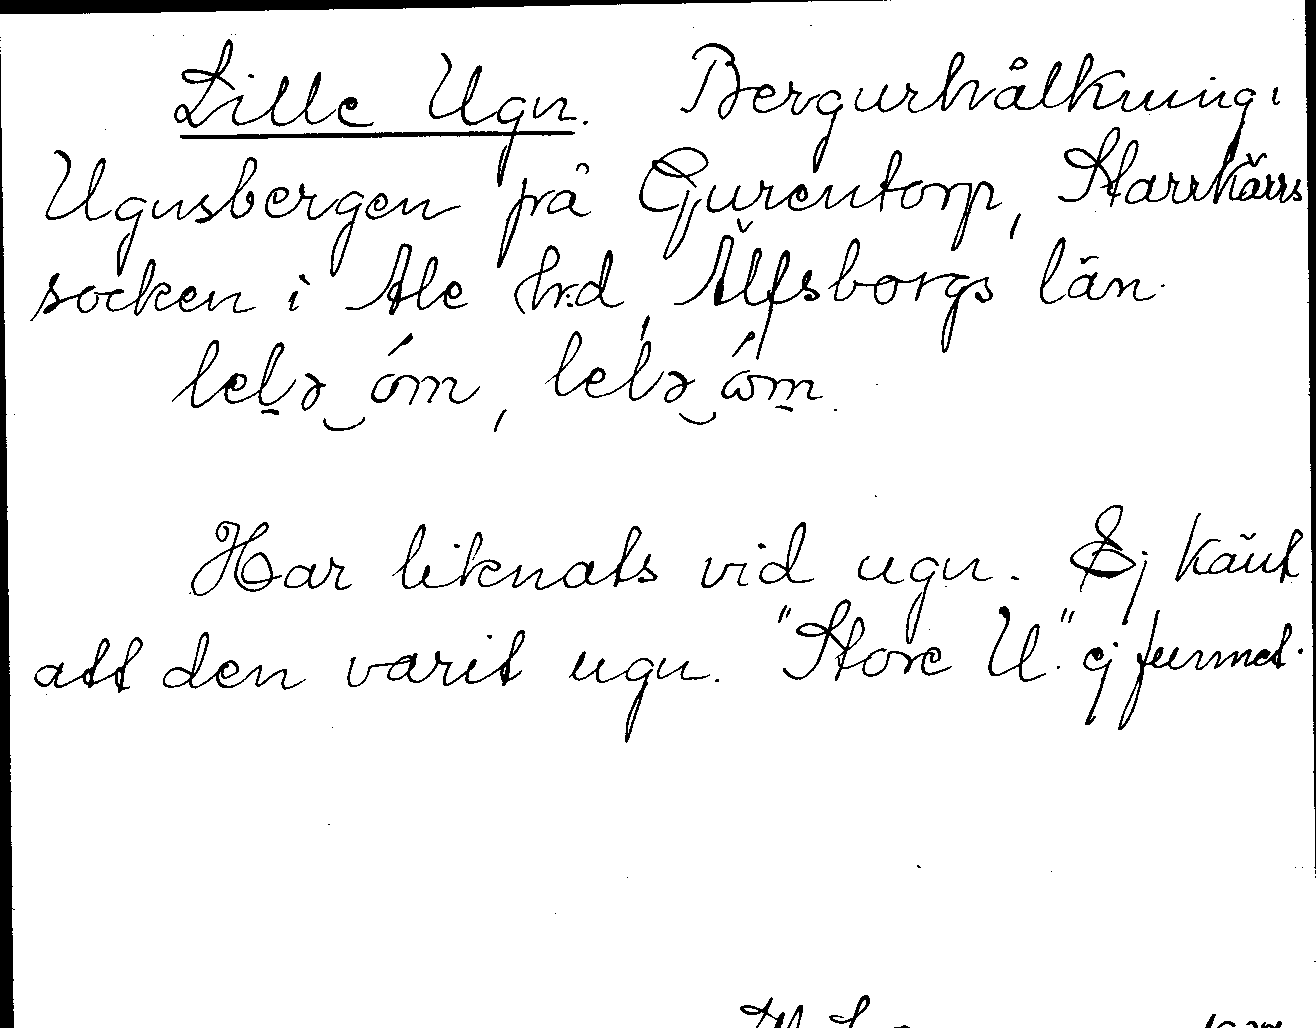 Lille Ugn. Bergurhålkning i
Ugnsbergen på Gurentorp, Starrkärrs
socken i Ale hrd, Älfsborgs län.
lelə‿óm, lelə‿ώm.
Har liknats vid ugn. Ej känt
att den varit ugn. "Store U." ej funnet.